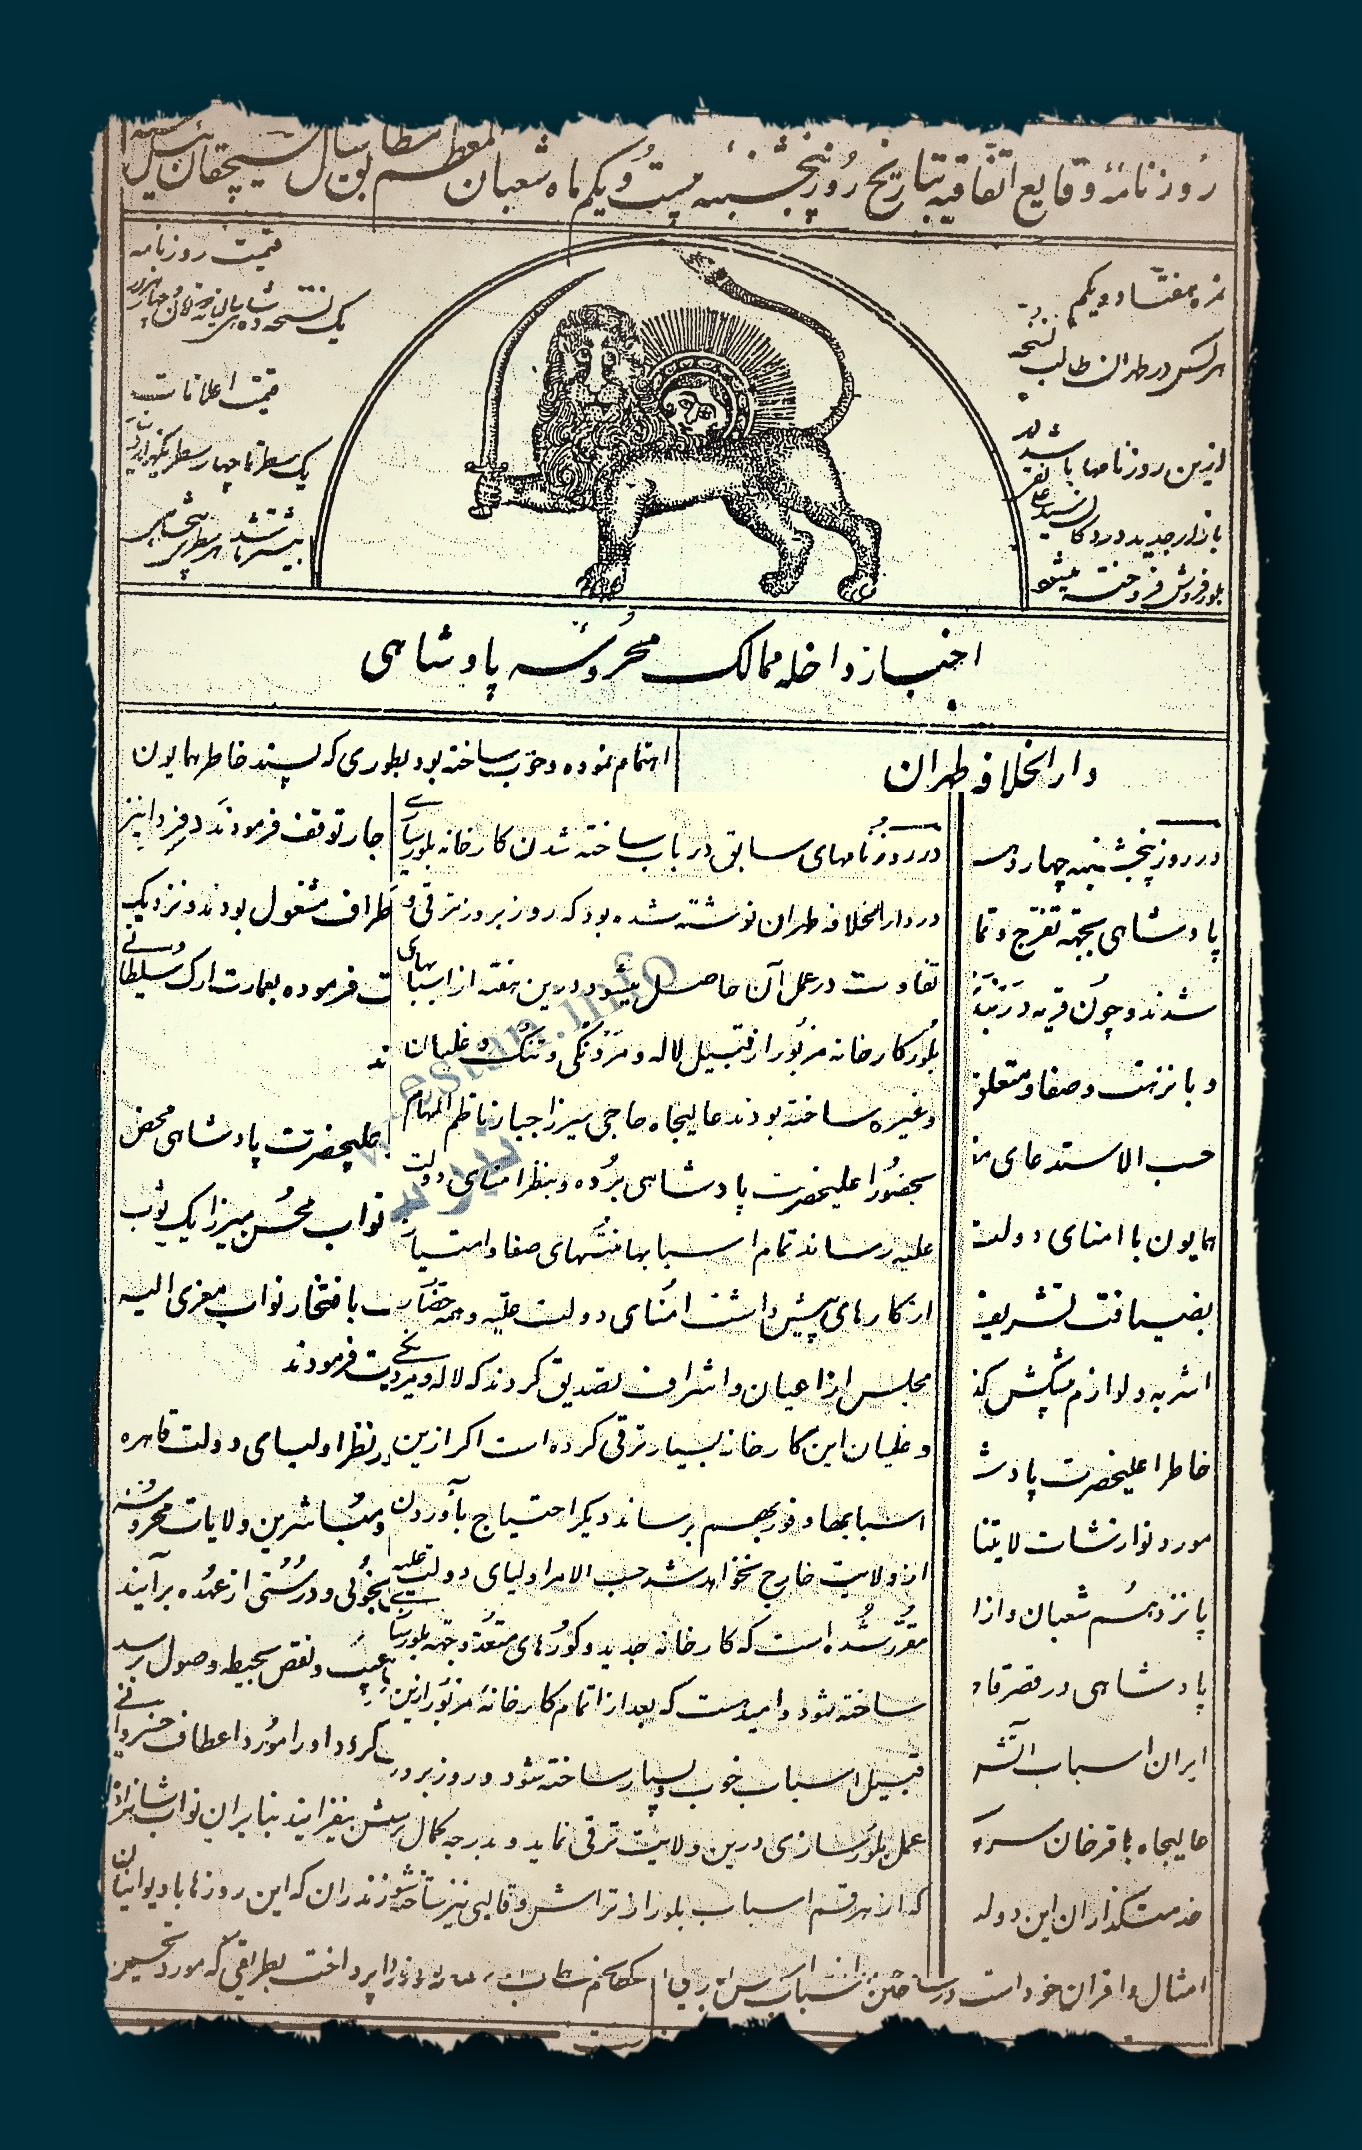 روزنامهٔ وقایع اتفاقیه بتاریخ روز پنجشنبه بیست و یکم ماه شعبان المعظم مطابق سال سیچقان ئیل
نمره هفتاد و یکم
هرکس در طهران طالب نسخه
ازین روزنامها باشد در
بازار جدید در دکان سید
بلور فروش فروخته میشود
قیمت روزنامه
یک نسخه ده شاهی
قیمت اعلانات
یک سطر تا چهار سطر یکهزار دینار
بیشتر باشد هر سطر پنجشاهی
اخبار داخله ممالک محروسه پادشاهی
دارالخلافه طهران
در روز پنجشنبه چهارده
پادشاهی بجهة تفرج و تما
شدند و چون قریه دربند
و با نزهت و صفا و متعلق
حسب الاستدعای
همایون با امنای دولت
بضیافت تشریف
اشربه و لوازم پیشکش
خاطر اعلیحضرت پادش
مورد نوازشات لایتنا
پانزدهم شعبان و از ا
پادشاهی در قصر قا
ایران اسباب آتش
عالیجاه باقرخان سر
خدمتگذاران این دول
امثال و اقران خود است در ساختن
در روزنامهای سابق در باب ساخته شدن کارخانه بلورسازی
در دارالخلافه طهران نوشته شده بود که روز بروز ترقی و
تفاوت در عمل آن حاصل میشود درین هفته از اسبابهای
بلور کارخانه مزبور از قبیل لاله و مردنگی و تنگ و غلیان
و غیره ساخته بودند عالیجاه حاجی میرزا جبار ناظم المهام
بحضور اعلیحضرت پادشاهی برده و بنظر امنای دولت
علیه رساند تمام اسبابها منتهای صفا و امتیاز
از کارهای پیش داشت امنای دولت علیه و همه حضار
مجلس از اعیان و اشراف تصدیق کردند که لاله و مردنگی
و غلیان این کارخانه بسیار ترقی کرده است اگر ازین
اسبابها وفور بهم برساند دیگر احتیاج بآوردن
از ولایت خارج نخواهد شد حسب الامر اولیای دولت علیه
مقرر شده است که کارخانه جدید و کورهای متعدد بجهة بلورسازی
ساخته شود و امید هست که بعد از اتمام کارخانهٔ مزبور ازین
قبیل اسباب خوب و بسیار ساخته شود و روز بروز
عمل بلورسازی درین ولایت ترقی نماید و بدرجه کمال رسد
که از هر قسم اسباب بلور از تراش و قالبی نیز ساخته شود
اهتمام نموده و خوب ساخته بود بطوری که پسند خاطر همایون
جا توقف فرمودند و فردا نیز
طراف مشغول بودند و نزدیک
ت فرموده بعمارت ارک سلطانی
ند
علیحضرت پادشاهی محض
نواب محسن میرزا یک ثوب
ت با فتخار نواب معزی الیه
ت فرمودند
در نظر اولیای دولت قاهره
و مباشرین ولایات محروسه
بخوبی و درستی از عهده برآیند
عیب و نقص بحیطه وصول برسد
کردد او را مورد اعطاف خسروانی
بیش بیفزایند بنابر این نواب شاهزاده
زندران که این روزها با دیوانیان
پرداخت بطریقی که مورد تحسین